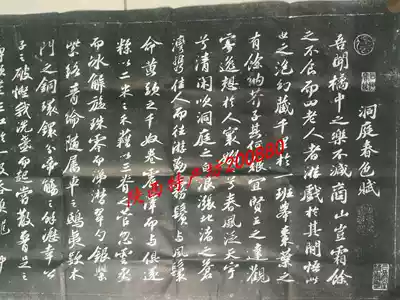 洞庭春色賦
吾聞橘中之樂不減商山豈霜餘
之不食而四老人者游戲於其間悟此
世之泡幻藏千里於一班舉棗葉之
有餘納芥子其何艱宜賢王之達觀
寄逸想於人寰嫋嫋兮春風泛天宇
兮清閑吹洞庭之白浪漲北渚之蒼
灣攜佳人而往游勤霧鬢與風鬟
命黃頭之千奴卷震澤而與俱還
糅以二米之禾藉以三脊之菅忽雲烝
而冰解旋珠零而涕潸翠勺銀罌
紫絡青綸隨屬車之鴟夷款木
門之銅鐶分帝觴之餘瀝幸公
子之破慳我洗盞而起嘗散腰足之
陕西特产店200880